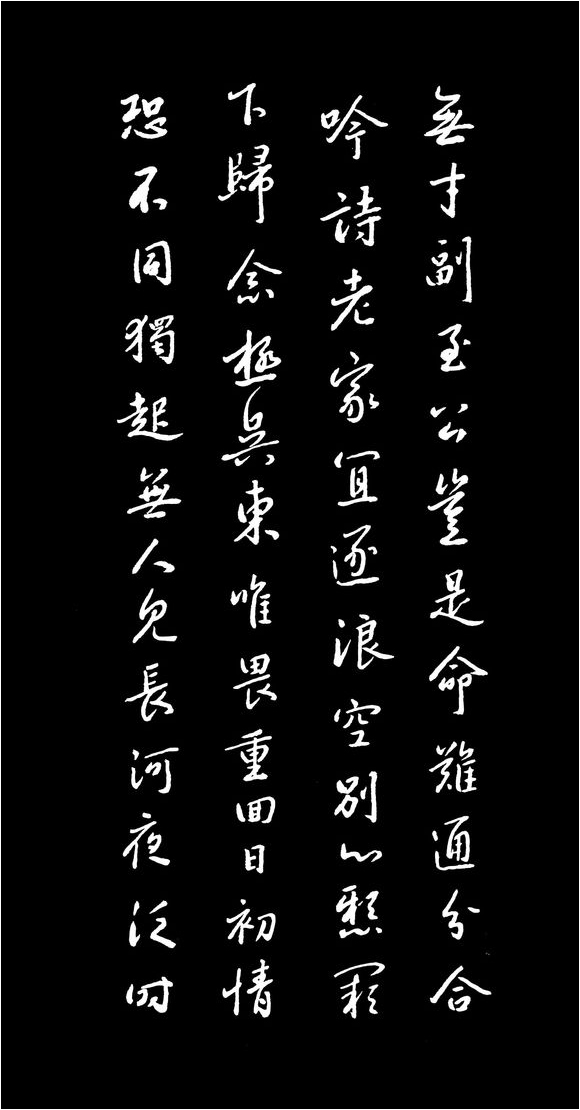 無才副至公豈是命難通分合
吟詩老家宜逐浪空別心懸闕
下歸念極吳東唯畏重回日初情
恐不同獨起無人見長河夜泛時